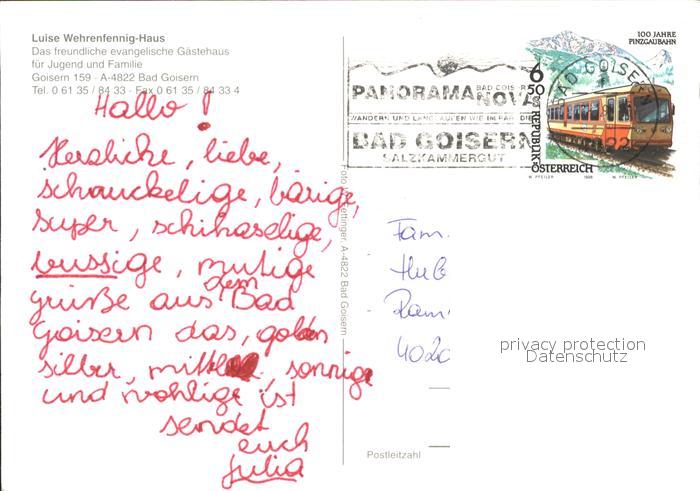 Luise Wehrenfennig-Haus
Das freundliche evangelische Gästehaus
für Jugend und Familie
Goisern 159 · A-4822 Bad Goisern
Tel. 0 61 35 / 84 33 - Fax 0 61 35 / 84 33 4
Hallo!
Herzliche, liebe,
schauckelige, bärige,
super, schihaselige,
bussige, mutige
grüße aus dem Bad
Goisern das, golden
silber, sonnige
und wohlige ist
sendet
euch
Julia
Foto A-4822 Bad Goisern
PANORAMA BAD GOISERN NOVA
WANDERN UND LANGLAUFEN WIE IM
BAD GOISERN
SALZKAMMERGUT
BAD GOISERN
4822
100 JAHRE
PINZGAUBAHN
6 50
REPUBLIK
ÖSTERREICH
W. PFEILER 1998 W. PFEILER
Fam.
Hub
4020
Postleitzahl
privacy protection
Datenschutz